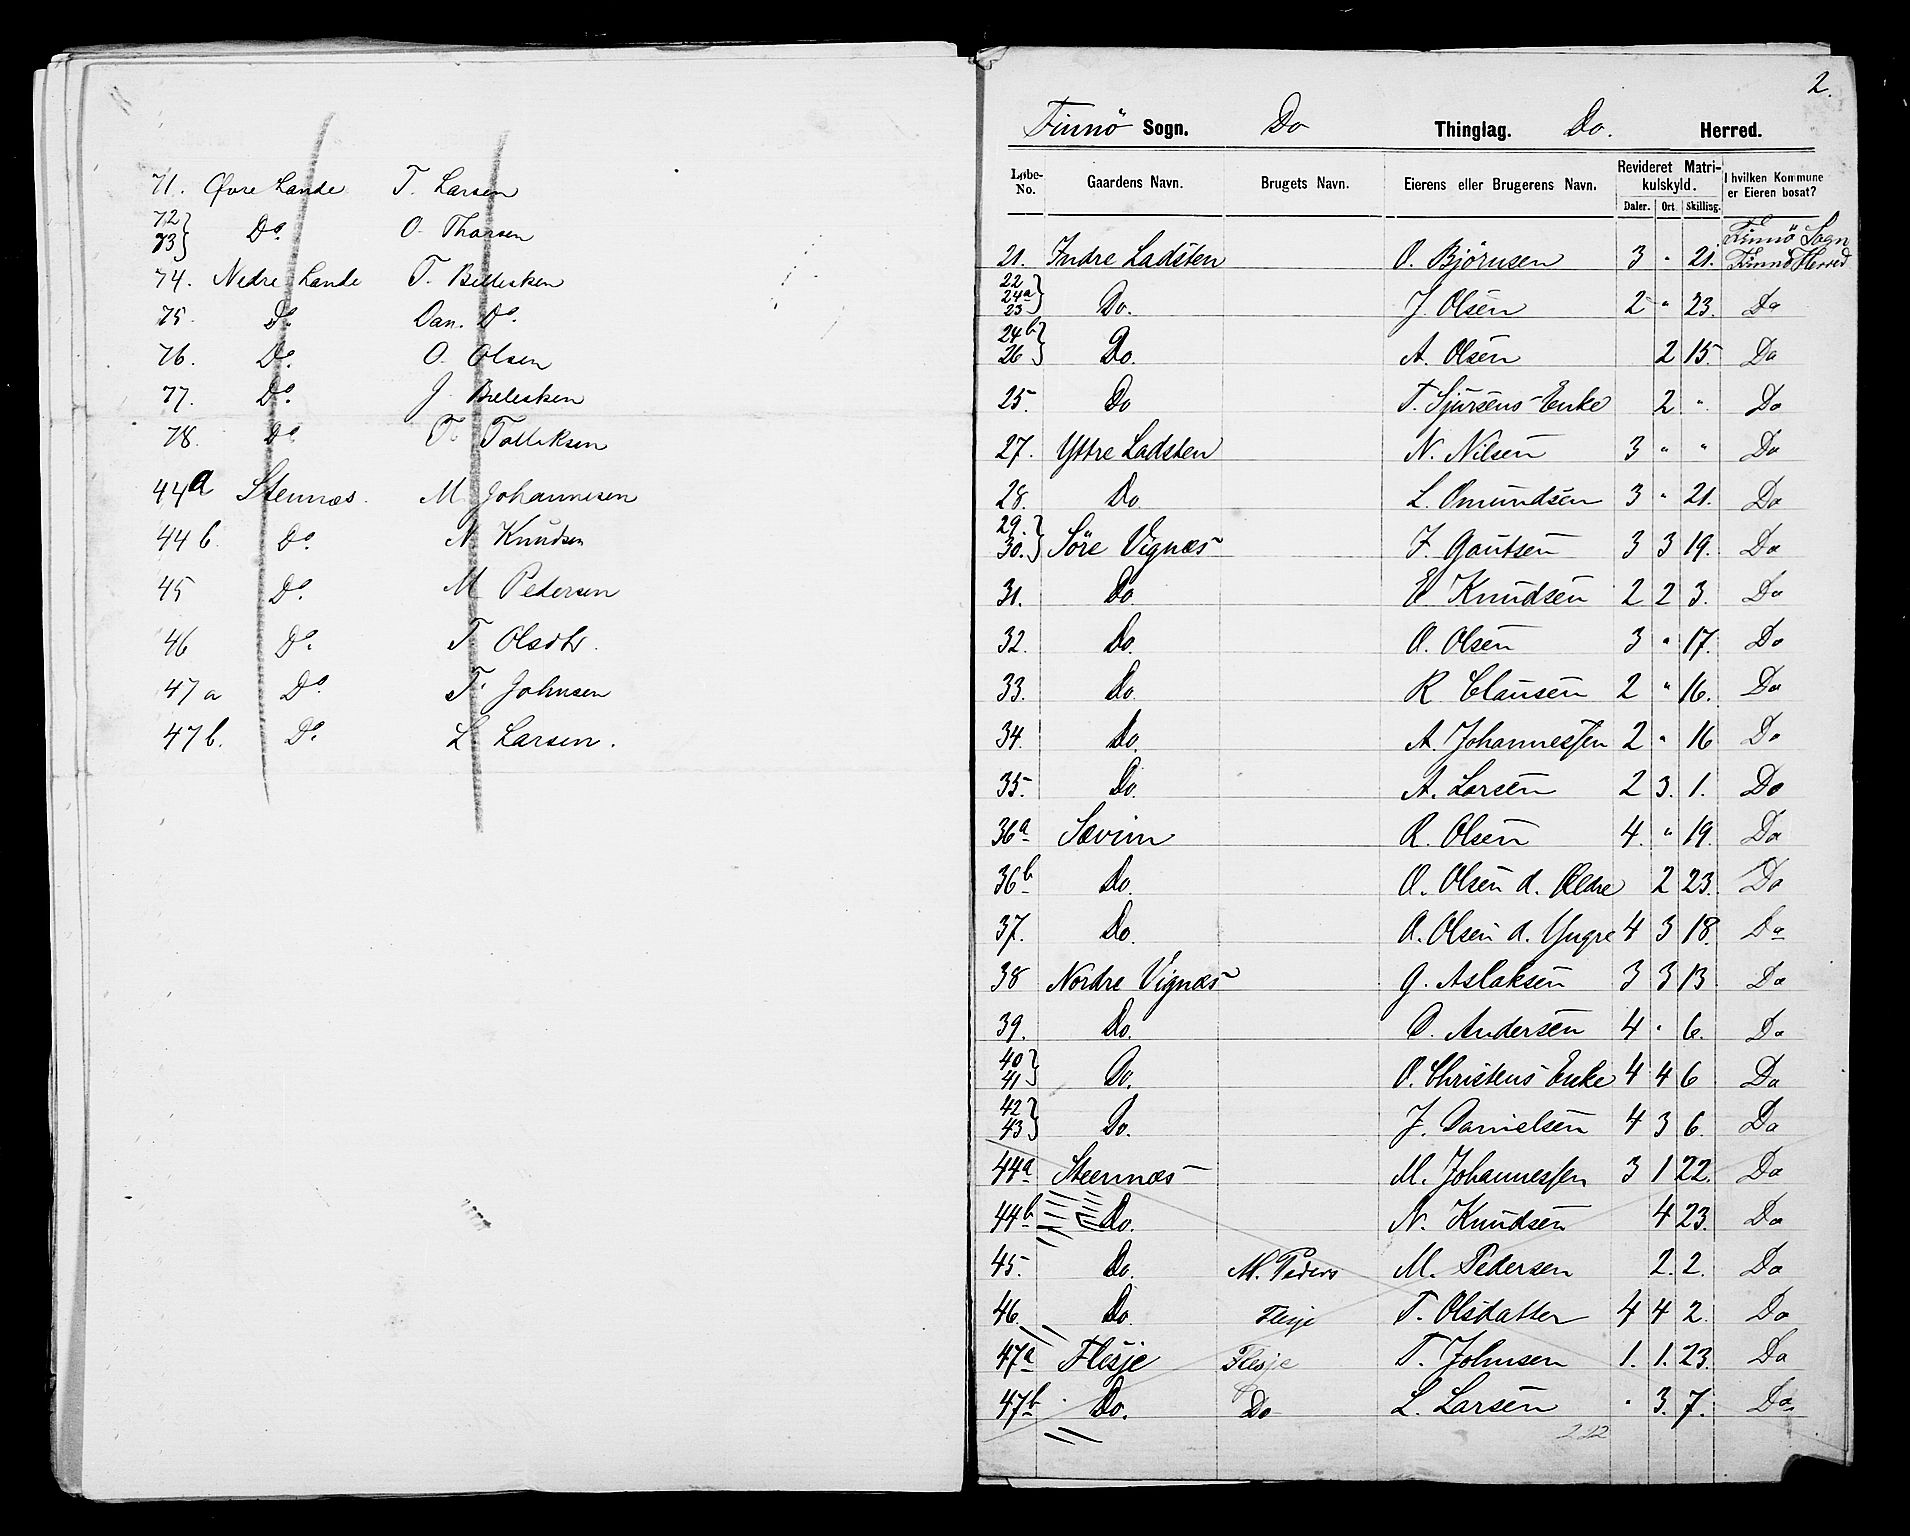 71. Øvre Lande T. Larsen
72 } 73 } Do. O. Thorsen
74. Nedre Lande T. Billesken
75. Do. Dan. Do.
76. Do. O. Olsen
77. Do. J. Bellesken
78. Do. T. Tolleksen
44a Stennæs. M. Johannesen
44b. Do. N Knudsen
45 Do. M. Pedersen
46 Do. T. Olsdtr.
47a Do. T. Johnsen
47b. Do. L. Larsen.
2.
Finnö Sogn. Do Thinglag. Do. Herred.
Løbe-No. Gaardens Navn. Brugets Navn. Eierens eller Brugerens Navn. Revideret Matrikulskyld. I hvilken Kommune er Eieren bosat?
Daler. Ort. Skilling.
21. Indre Ladsten O. Björnsen 3 " 21. Finnö Sogn Finnö Herred
22 24a 23 } Do. J. Olsen 2 " 23. Do
24b 26 } Do. A. Olsen 2 15. Do
25. Do T. Sjursens Enke 2 " Do
27. Yttre Ladsten N. Nilsen 3 " " Do
28. Do. L. Omundsen 3 " 21. Do
29. 30. } Söre Vignæs J. Gautsen 3 3 19. Do
31. Do. E Knudsen 2 2 3. Do
32. Do. O. Olsen 3 " 17. Do
33. Do. R Clausen 2 " 16. Do
34. Do. A. Johannessen 2 " 16 Do
35. Do. A. Larsen 2 3. 1. Do
36a Sævim R. Olsen 4. " 19. Do
36b Do. O. Olsen d. Ældre 2 23. Do
37. Do. O. Olsen d. Yngre 4 3 18. Do
38 Nordre Vignæs G. Aslaksen 3 3 13. Do
39. Do. O. Andersen 4 " 6. Do
40 41 } Do. O. Christens Enke 4 4 6 Do
42 43 } Do. J. Danielsen 4 3 6. Do
44a Steennæs M. Johannessen 3 1 22. Do
44b Do. N. Knudsen 4 23. Do
45. Do. M. Peders M. Pedersen 2. 2. Do
46. Do. Flesje T. Olsdatter 4 4 2. Do
47a Flesje Flesje T. Johnsen 1. 1. 23. Do
47b Do. Do L. Larsen " 3. 7. Do